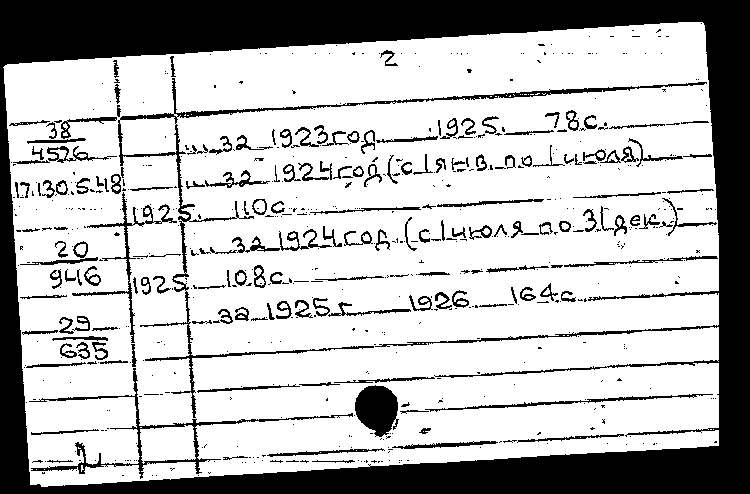 2
38
4526 ... за 1923 год 1925. 78с.
17.130.5.48 ... за 1924 год (с 1 янв. по 1 июля).
1925. 110с.
20 ... за 1924 год (с 1 июля по 31 дек.)
946 1925. 108с.
29 за 1925 г 1926 164с
635